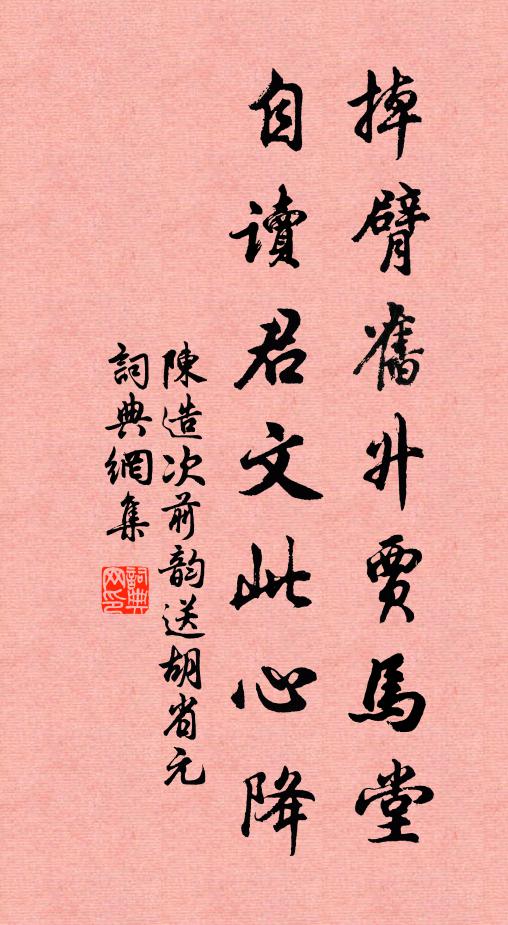 掉臂舊升賈馬堂
自讀君文此心降
陳造次前韵送胡省元
詞典網集
詞典网印